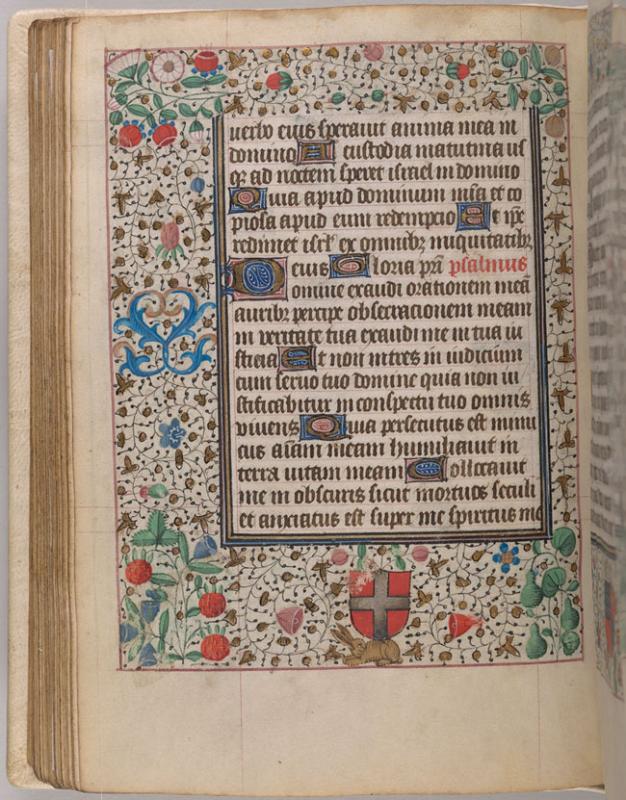 uerbo eius sperauit anima mea in
domino A custodia matutina us
q₃ ad noctem speret israel in domino
Quia apud dominum mīa et co
piosa apud eum redempcio Et ip̄e
redimet isrl̄ ex omnib₃ iniquitatib₃
eius Gloria pr̄i psalmus
Domine exaudi orationem meā
aurib₃ percipe obsecrationem meam
in veritate tua exaudi me in tua iu
sticia Et non intres in iudicium
cum seruo tuo domine quia non iu
stificabitur in conspectu tuo omnis
viuens Quia persecutus est inimi
cus aīam meam humiliauit in
terra uitam meam Collocauit
me in obscuris sicut mortuos seculi
et anxiatus est super me spiritus me